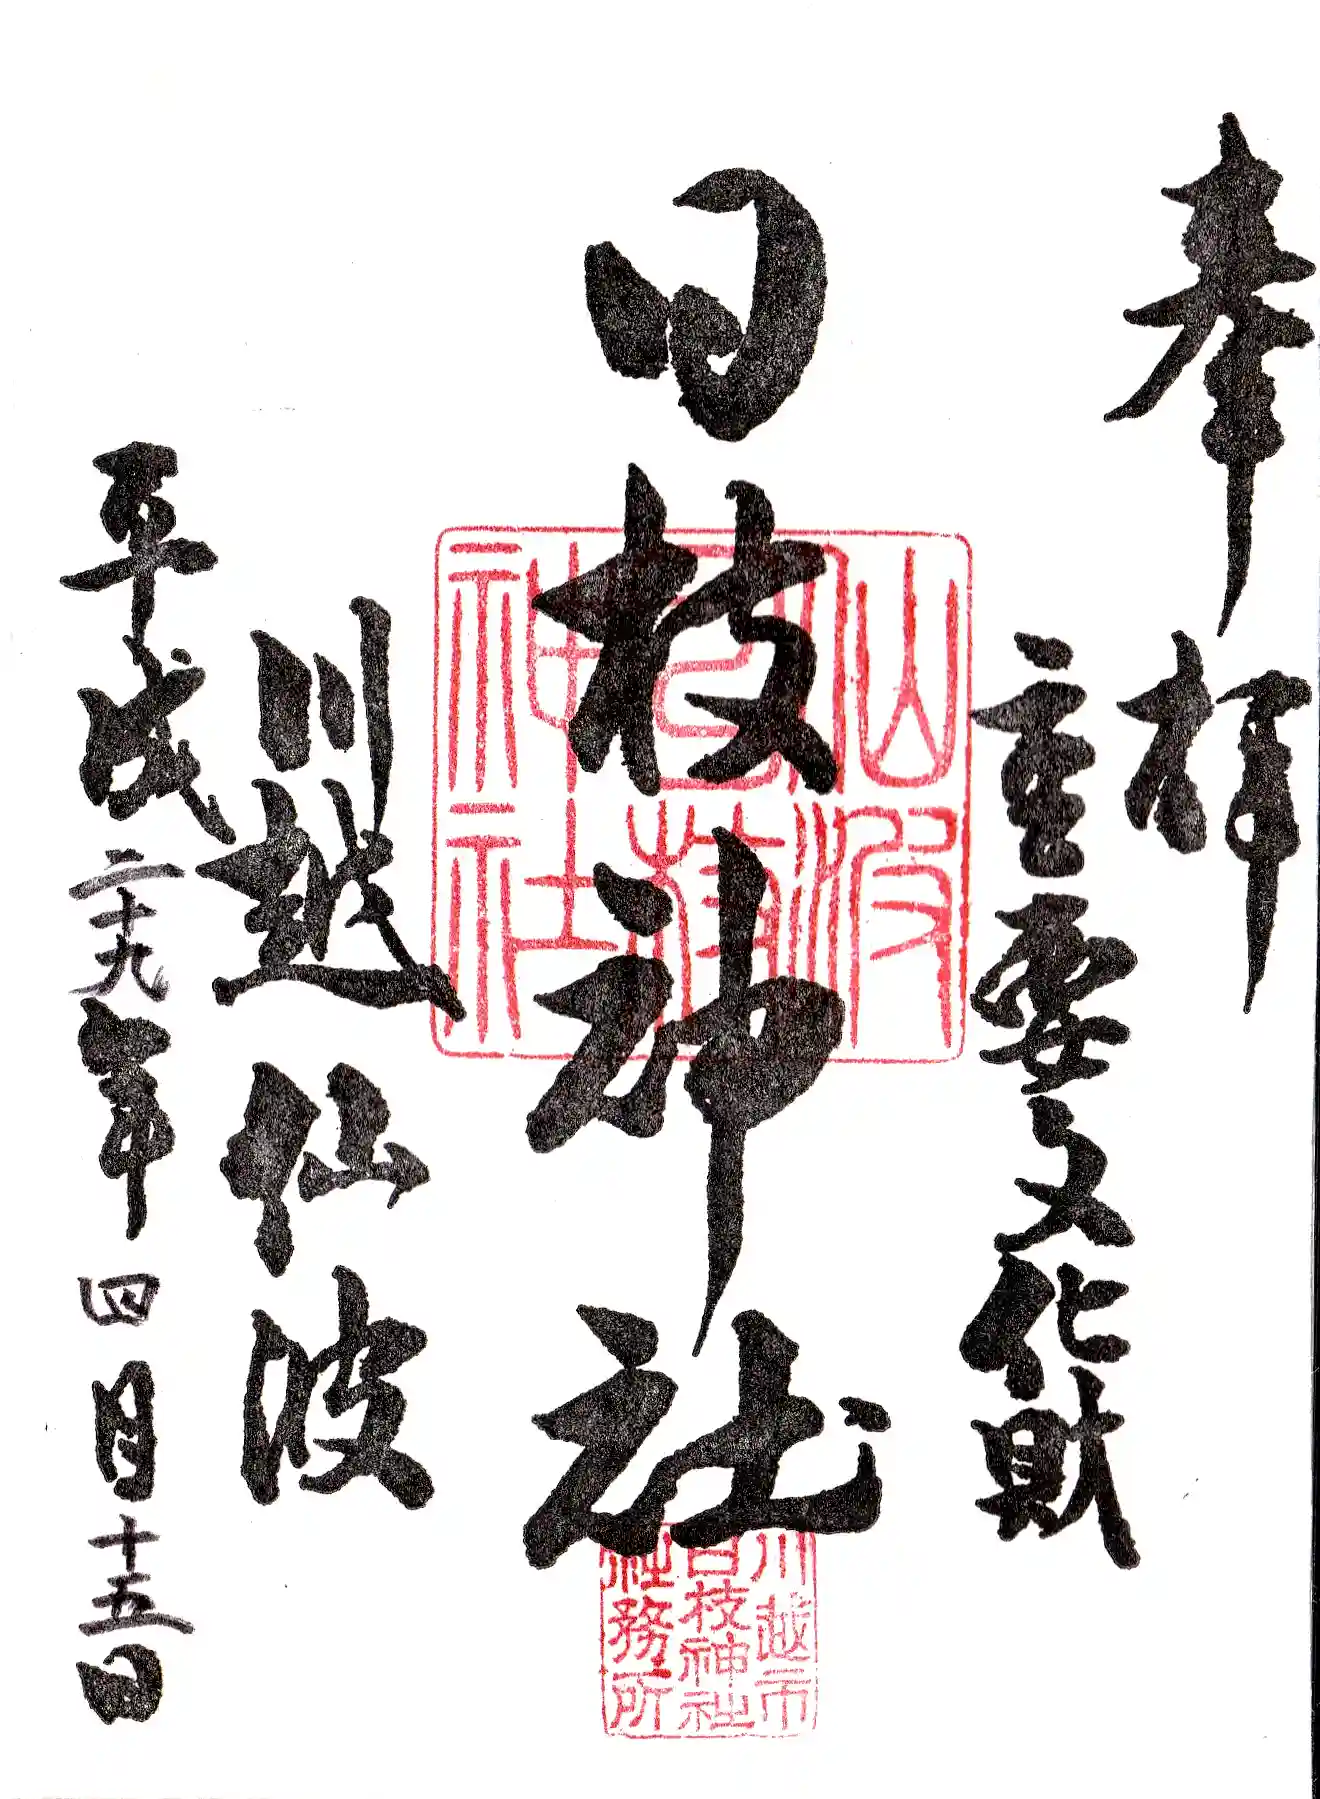 奉拝
重要文化財
日枝神社
川越仙波
平成二十九年四月十五日
仙波
日枝
神社
川越市
日枝神社
社務所